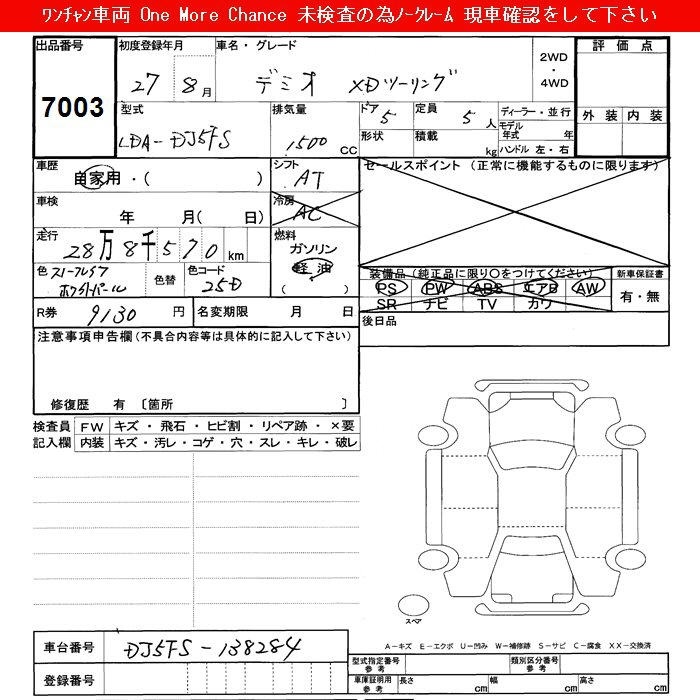 ﾜﾝﾁｬﾝ車両 One More Chance 未検査の為ﾉｰｸﾚｰﾑ 現車確認をして下さい
出品番号 初度登録年月 車名・グレード 2WD ・ 4WD 評価点
7003 27 8月 デミオ XDツーリング
型式 排気量 ドア 5 定員 5人 ディーラー・並行 外装 内装
LDA-DJ5FS 1500 CC 形状 積載 kg モデル年式 年
ハンドル 左・右
車歴 自家用・( ) シフト AT セールスポイント (正常に機能するものに限ります)
車検 年 月( 日) 冷房 AC
走行 28万8千570km 燃料 ガソリン 軽油 ( )
色 スノーフレイクホワイトパール 色替 色コード 25D 装備品 (純正品に限り○をつけてください) 新車保証書
PS PW ABS エアB AW 有・無
SR ナビ TV カワ
R券 9130円 名変期限 月 日 後日品
注意事項申告欄(不具合内容等は具体的に記入して下さい)
修復歴 有 〔箇所 〕
検査員記入欄 FW キズ・飛石・ヒビ割・リペア跡・×要
内装 キズ・汚レ・コゲ・穴・スレ・キレ・破レ
スペア
車台番号 DJ5FS-138284
A-キズ E-エクボ U-凹み W-補修跡 S-サビ C-腐食 XX-交換済
登録番号 型式指定番号 参考 類別区分番号 参考
車庫証明用 参考 長さ cm 幅 cm 高さ cm